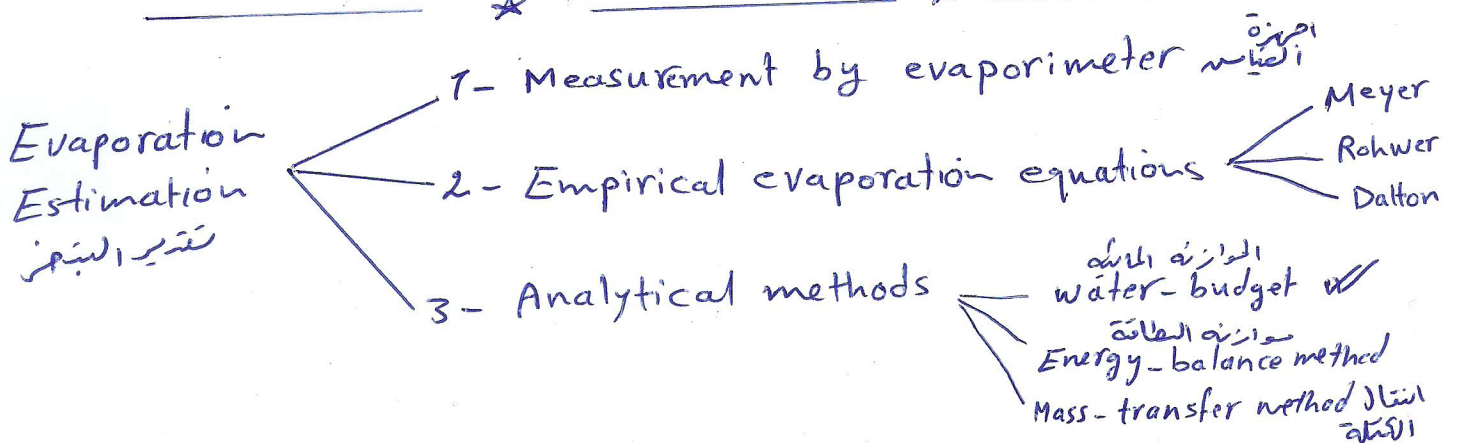 Evaporation
Estimation
تقدير التبخر
1- Measurement by evaporimeter اجهزة القياس
2- Empirical evaporation equations
Meyer
Rohwer
Dalton
3- Analytical methods
الموازنه المائيه
water-budget
موازنه الطاقة
Energy-balance method
Mass-transfer method انتقال
الكتلة